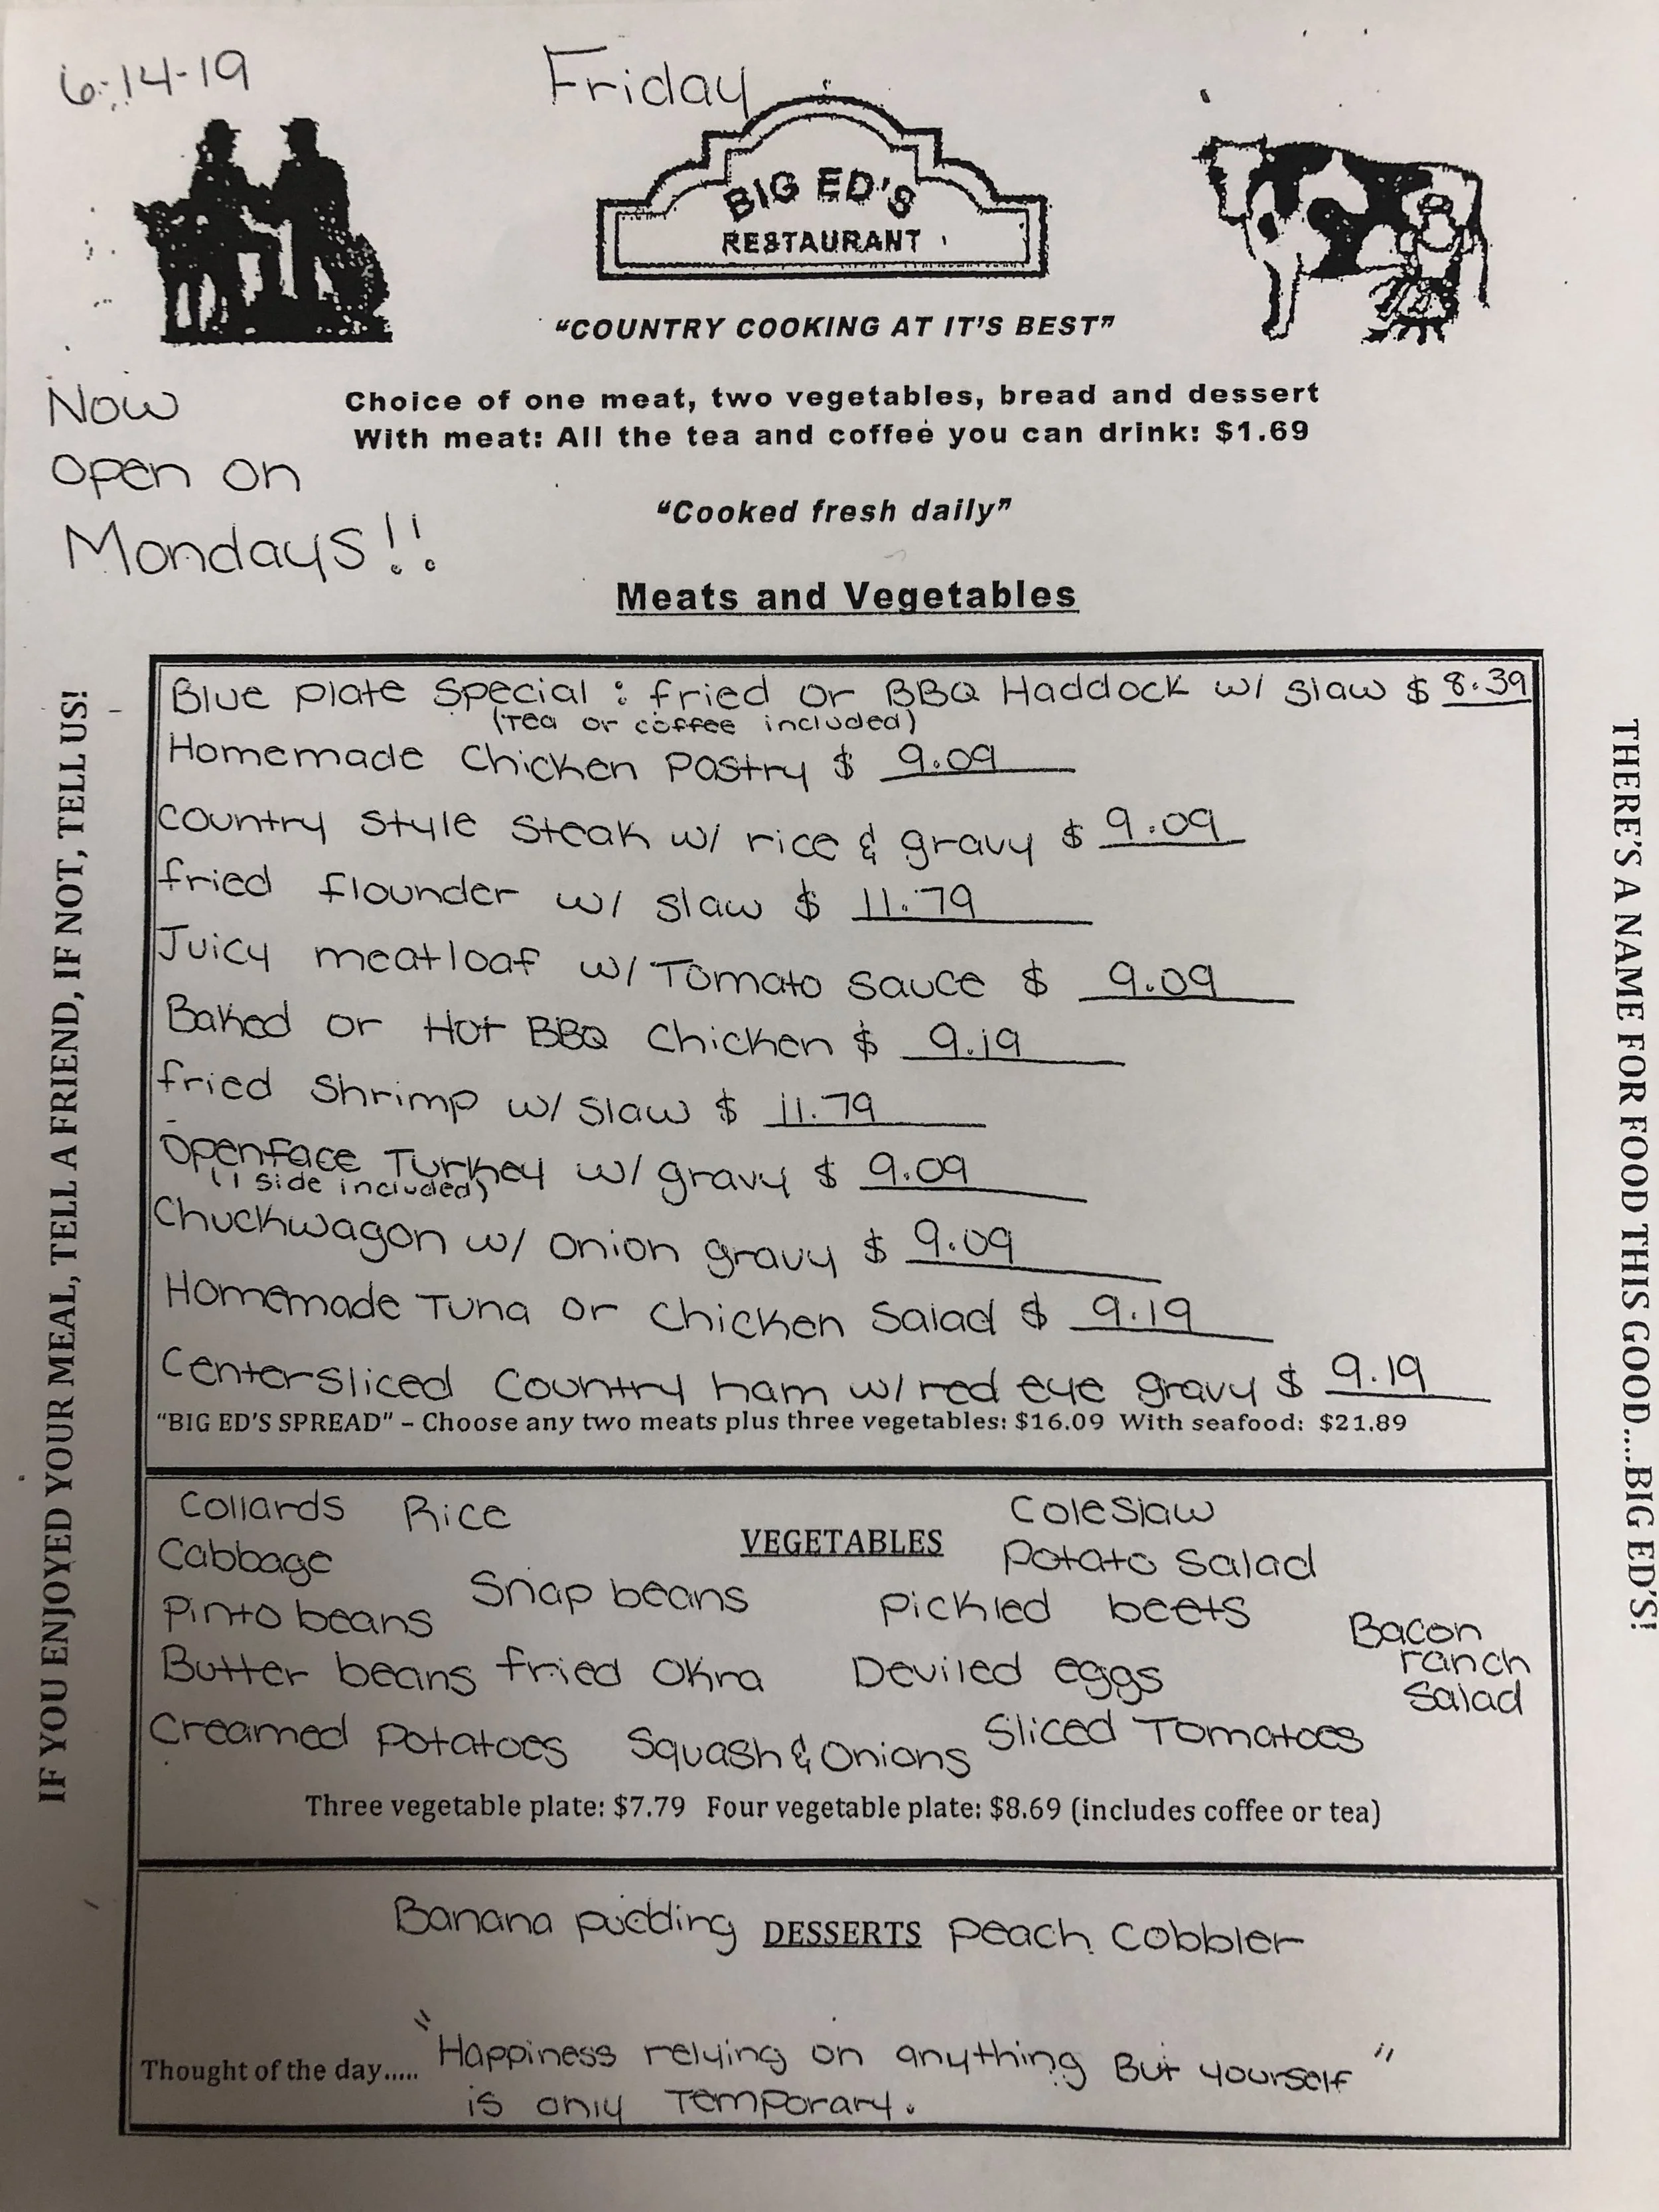 6-14-19
Friday
BIG ED'S
RESTAURANT
"COUNTRY COOKING AT IT'S BEST"
Now
open on
Mondays!!
Choice of one meat, two vegetables, bread and dessert
With meat: All the tea and coffee you can drink: $1.69
"Cooked fresh daily"
Meats and Vegetables
IF YOU ENJOYED YOUR MEAL, TELL A FRIEND, IF NOT, TELL US!
THERE'S A NAME FOR FOOD THIS GOOD....BIG ED'S!
Blue Plate Special : fried or BBQ Haddock w/ slaw $ 8.39
(Tea or coffee included)
Homemade Chicken Pastry $ 9.09
Country Style Steak w/ rice & gravy $ 9.09
fried flounder w/ slaw $ 11.79
Juicy meatloaf w/ Tomato sauce $ 9.09
Baked or Hot BBQ Chicken $ 9.19
fried Shrimp w/ slaw $ 11.79
Openface Turkey w/ gravy $ 9.09
(1 side included)
Chuckwagon w/ onion gravy $ 9.09
Homemade Tuna or Chicken Salad $ 9.19
Centersliced Country ham w/ red eye gravy $ 9.19
"BIG ED'S SPREAD" – Choose any two meats plus three vegetables: $16.09 With seafood: $21.89
VEGETABLES
Collards Rice Coleslaw
Cabbage Potato Salad
Pinto beans Snap beans Pickled beets
Butter beans fried Okra Deviled eggs
Bacon
ranch
Salad
Creamed Potatoes Squash & Onions Sliced Tomatoes
Three vegetable plate: $7.79 Four vegetable plate: $8.69 (includes coffee or tea)
Banana pudding DESSERTS Peach Cobbler
Thought of the day..... "Happiness relying on anything But yourself"
is only Temporary.